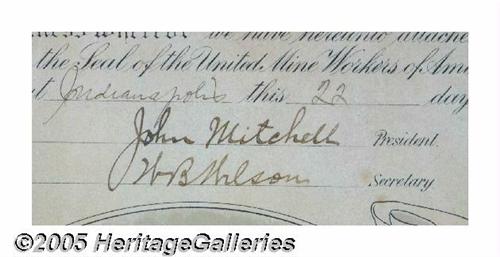 we have hereunto attache
the Seal of the United Mine Workers of Ame
t Indianapolis this 22 day
John Mitchell President.
WB Wilson Secretary
©2005 HeritageGalleries